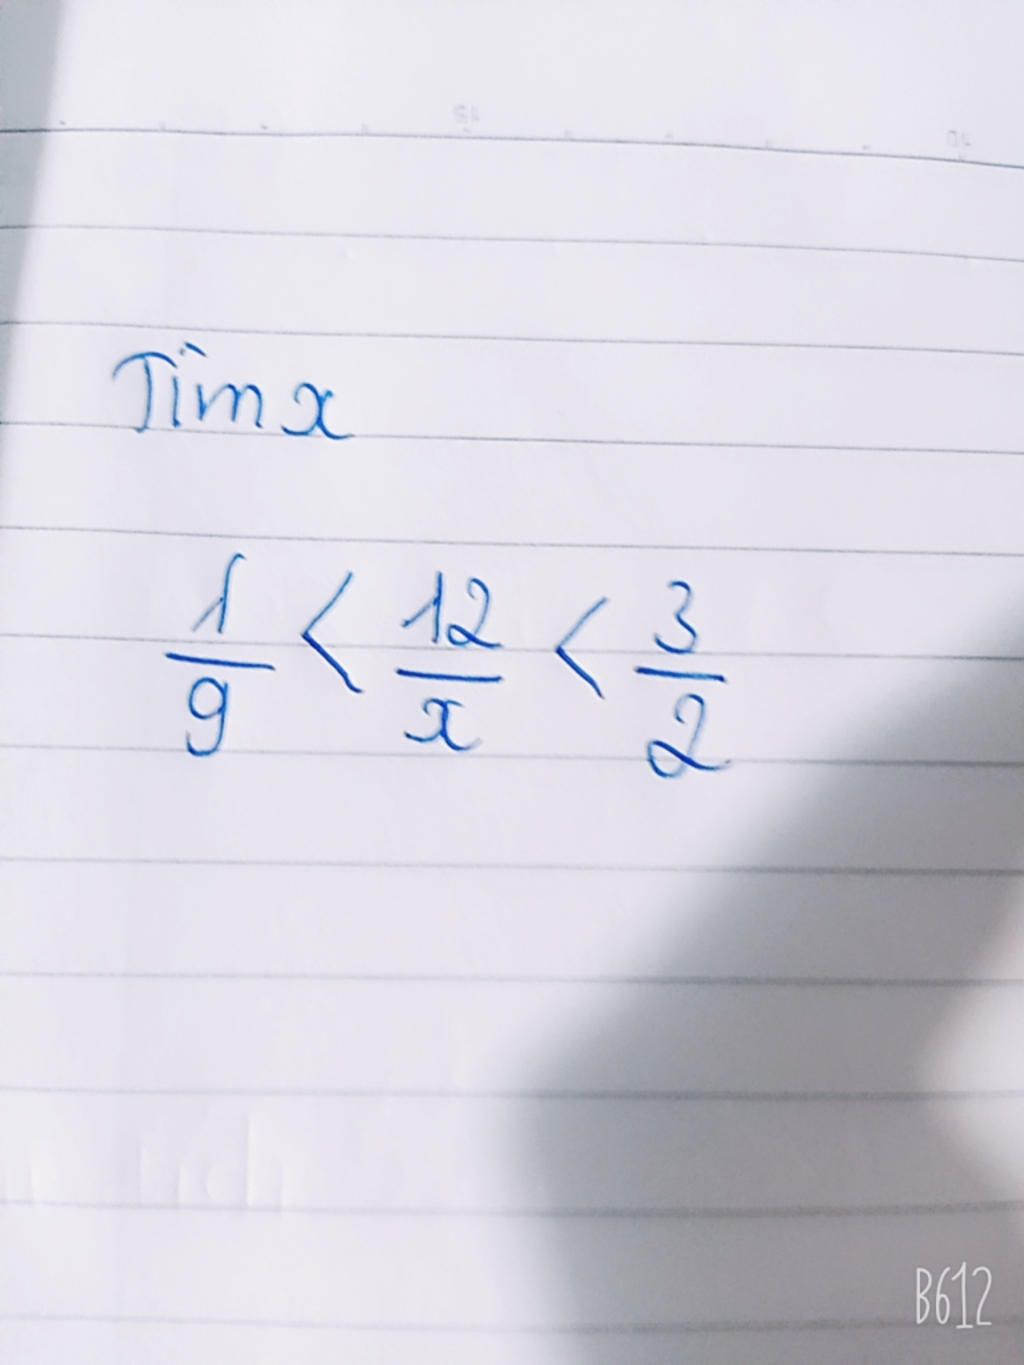 Tìm x
1/9 < 12/x < 3/2
B612